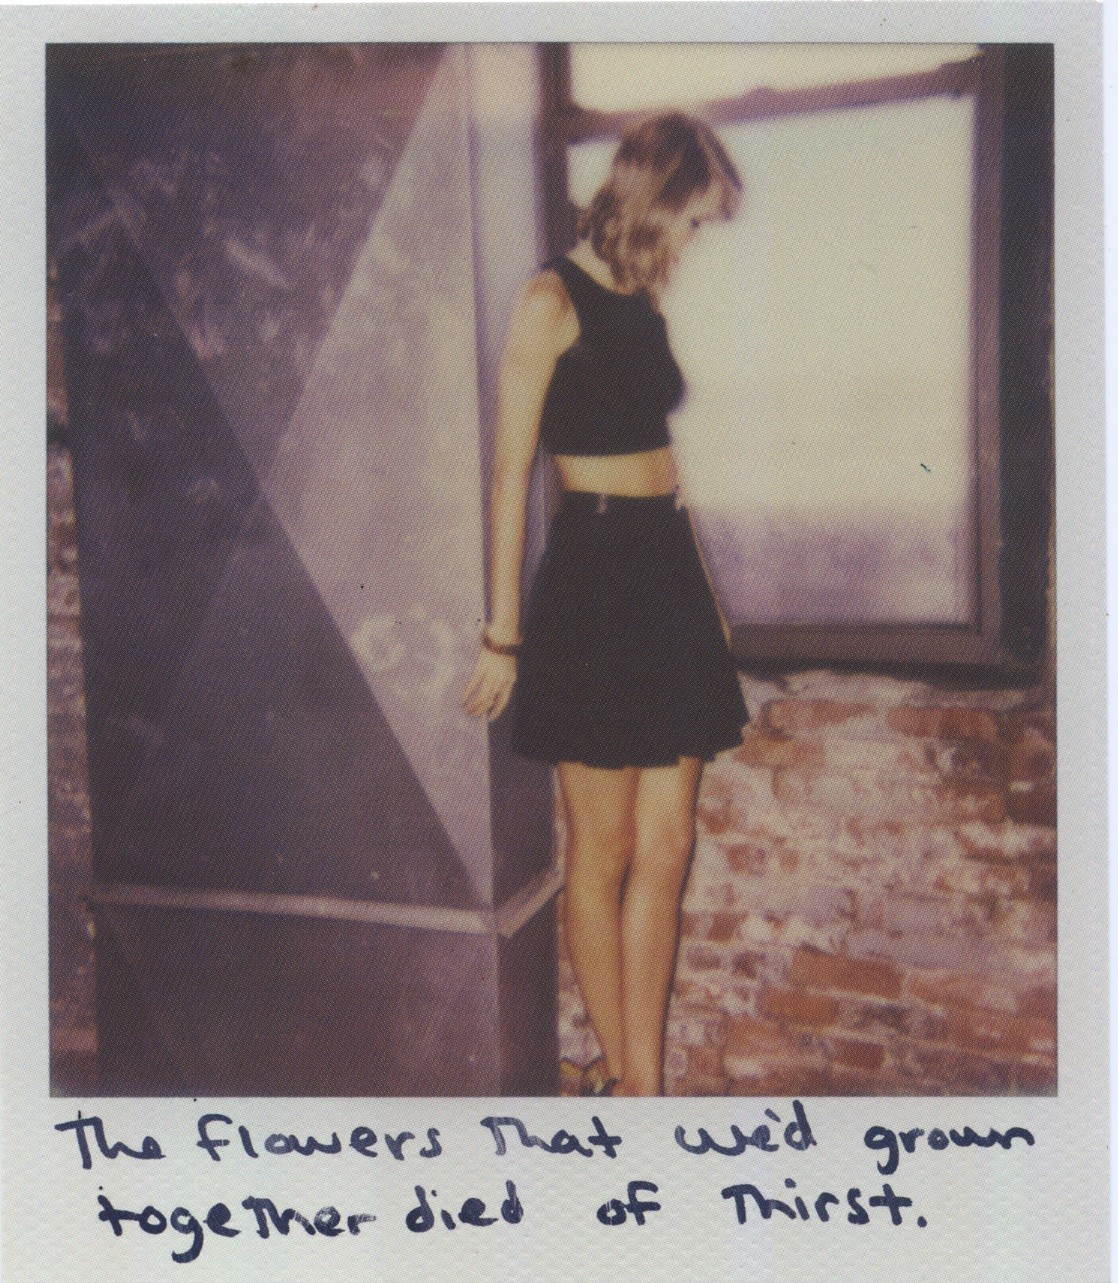 The flowers that we'd grown
together died of thirst.